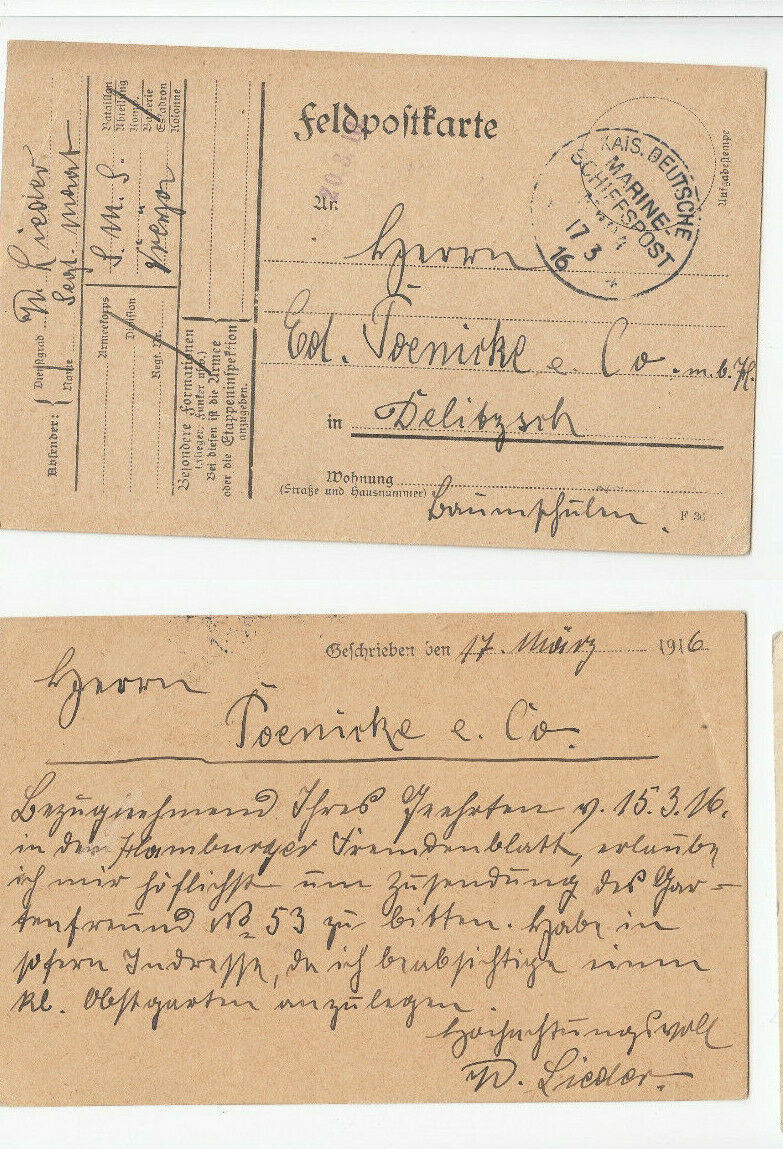 Feldpostkarte
20.3.16
An
KAIS. DEUTSCHE
MARINE-
SCHIFFSPOST
17 3
16
Aufgabestempel
Herrn
Ed. Poenicke e. Co. m. b. H.
in Delitzsch
Wohnung
(Straße und Hausnummer)
Baumschulen.
Absender:
Dienstgrad
Name
W. Lieder
Segl. Maat
Armeekorps
Division
Regt. Nr.
S. M. S.
Bataillon
Abteilung
Komp.
Batterie
Eskadron
Kolonne
Besondere Formationen
(Flieger, Funker usw.)
Bei diesen ist die Armee
oder die Etappeninspektion
anzugeben.
Geschrieben den 17. März 1916
Herrn
Poenicke e. Co.
Bezugnehmend Ihres Geehrten v. 15.3.16.
in dem Hamburger Fremdenblatt, erlaube
ich mir höflichst um Zusendung des Gar=
tenfreund No 53 zu bitten. Habe in
sofern Indresse, da ich beabsichtige einen
kl. Obstgarten anzulegen.
Hochachtungsvoll
W. Lieder.